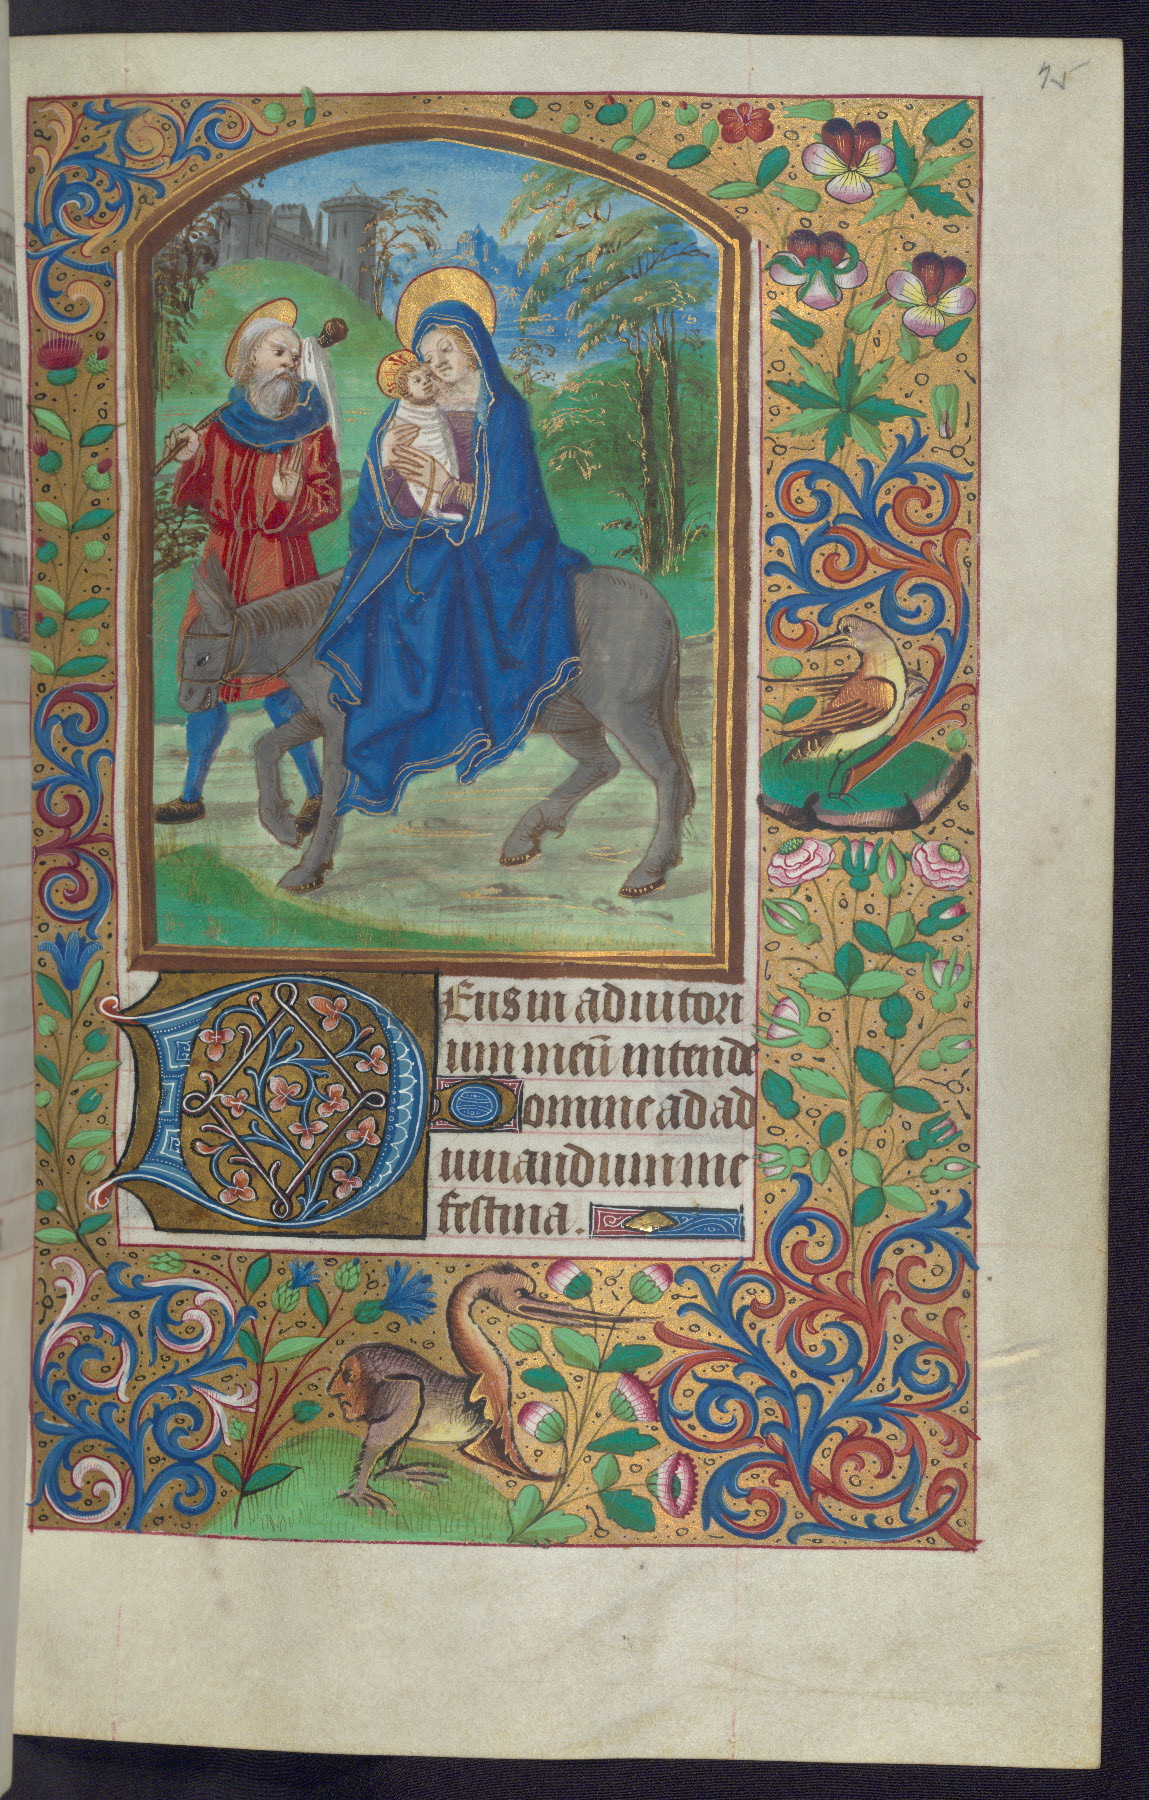 75
Deus in adiutori
um meū intende
Domine ad ad
iuuandum me
festina.